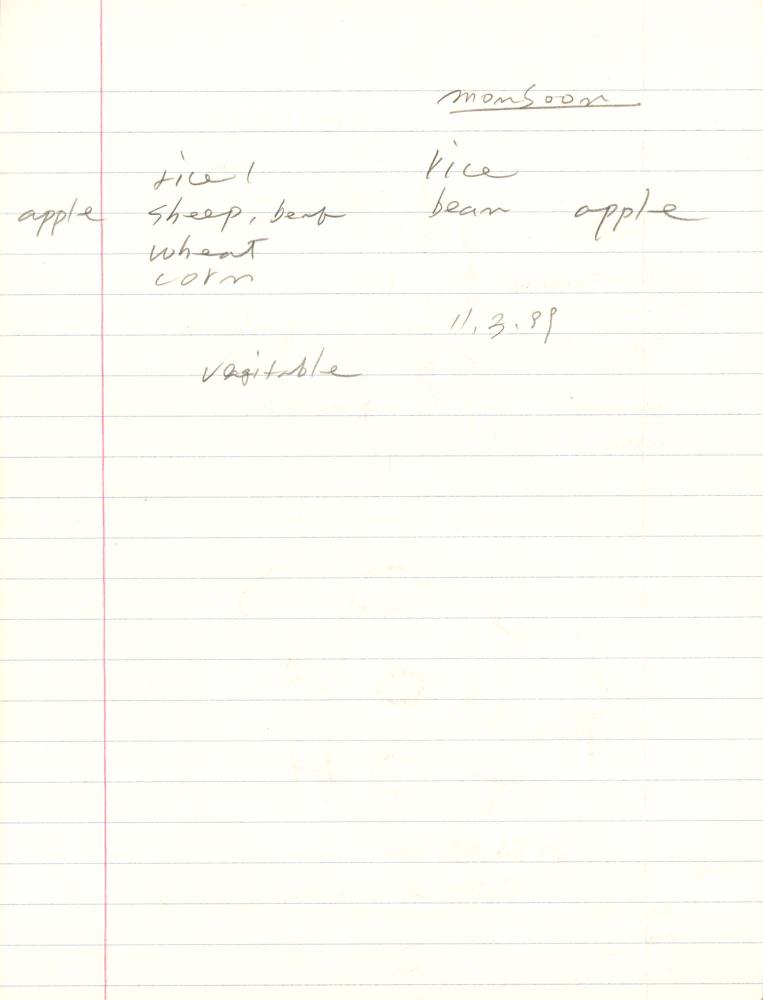 monsoon
rice rice
apple sheep, beaf bean apple
wheat
corn
11.3.89
vegitable